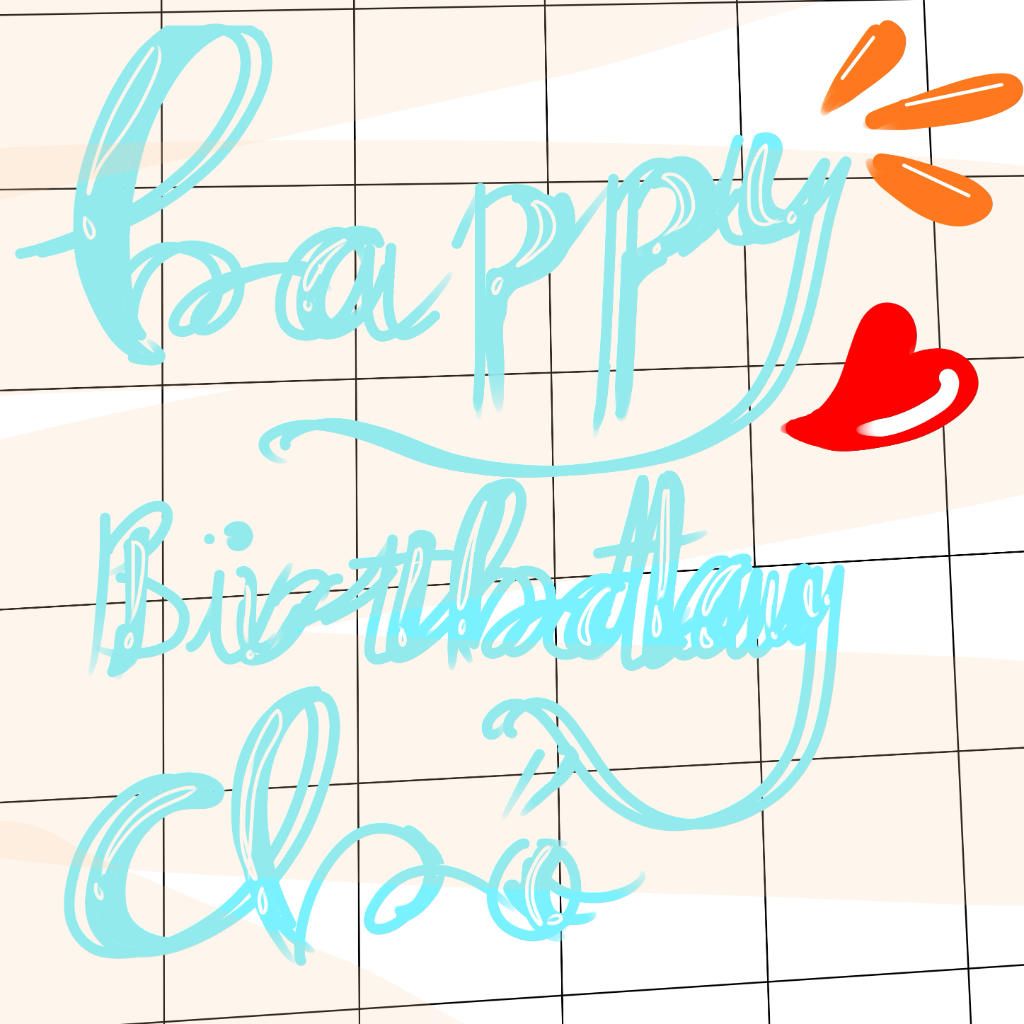 happy
Birthday
Chó